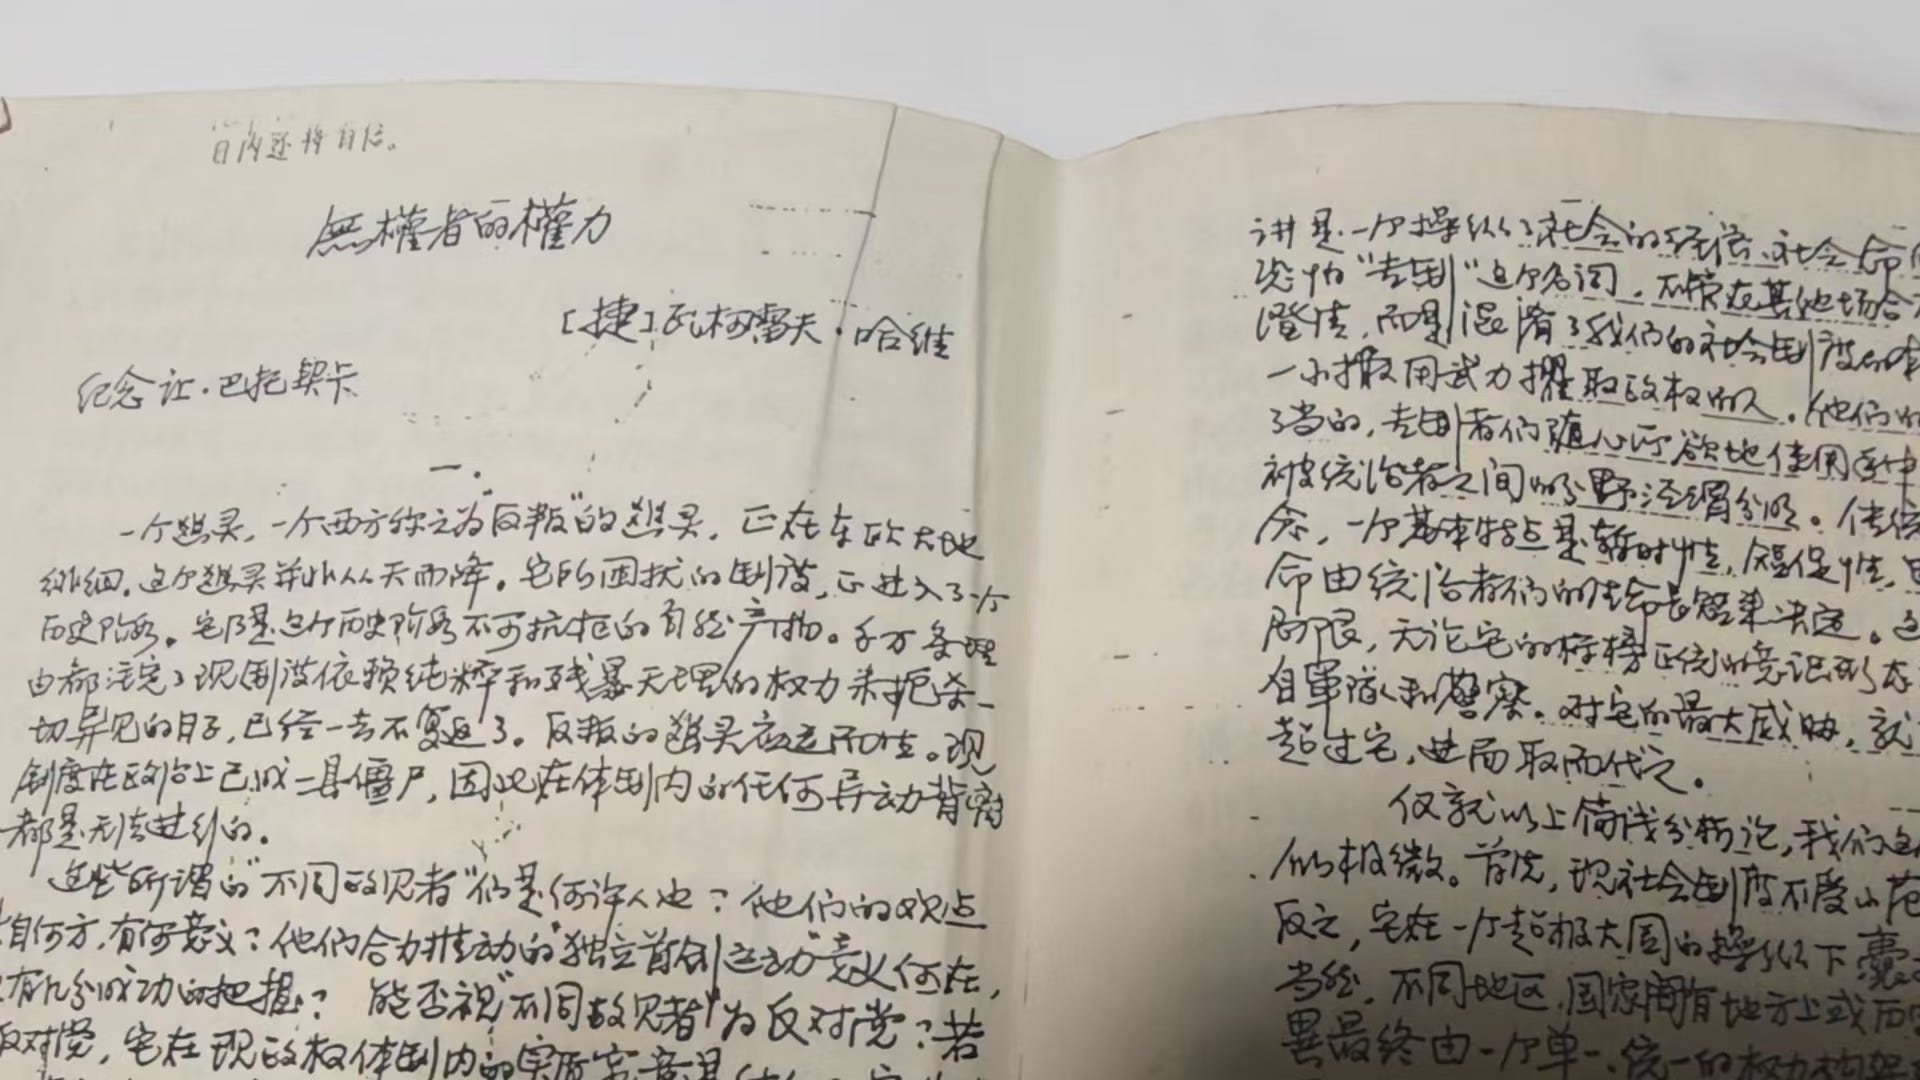 日内还将自信。
無權者的權力
[捷]瓦校雷夫·哈维
纪念让·巴托契卡
一.
一个幽灵,一个西方称之为"反叛"的幽灵,正在东欧大地
徘徊。这个幽灵并非从天而降。它所困扰的制度,正进入了一个
历史阶段。它乃是这个历史阶段不可抗拒的自然产物。千万条理
由都注定了现制度依赖纯粹和残暴无理的权力来扼杀一
切异见的日子,已经一去不复返了。反叛的幽灵应运而生。现
制度在政治上已成一具僵尸,因此在体制内的任何异动背离
都是无法进行的。
这些所谓的"不同政见者"们是何许人也?他们的观点
自何方,有何意义?他们合力推动的"独立首创运动"意义何在,
有几分成功的把握?能否视"不同政见者"为反对党?若
反对党,它在现政权体制内的
讲是一个操纵了社会的经济、社会命
恐怕"专制"这个名词,不管在其他场合
澄清,而是混淆了我们的社会制度的本
一小撮用武力攫取政权的人。他们的
了当的,专制者们随心所欲地使用手中
被统治者之间的分野泾渭分明。传统
念,一个基本特点是暂时性,短促性,
命由统治者们的生命长短来决定。这
局限,无论它的标榜正统的意识形态
自軍隊和警察。对它的最大威胁,就
超过它,进而取而代之。
仅就以上简浅分析论,我们这
似极微。首先,现社会制度不受小范
反之,它在一个超极大国的操纵下囊
当然,不同地区,国家拥有地方上或历
異最终由一个单一、统一的权力构架